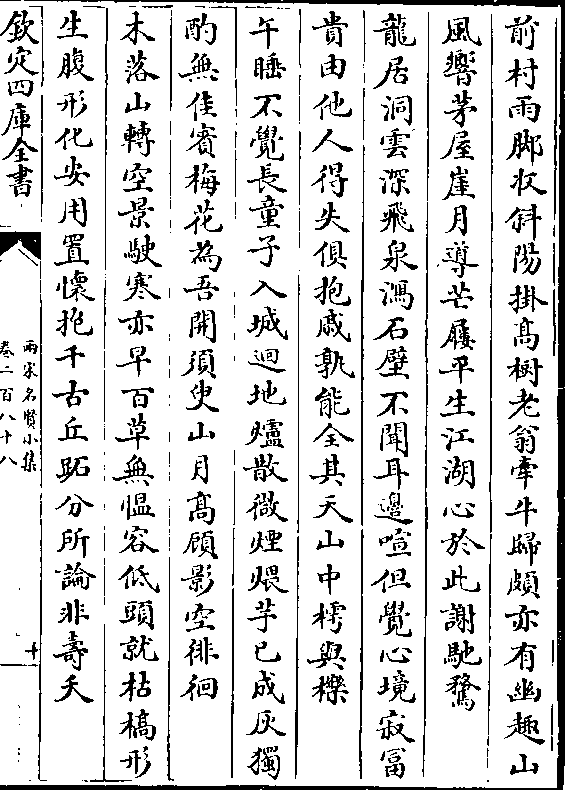 前村雨脚收斜陽掛髙樹老翁牽牛歸頗亦有幽趣山
風響茅屋崖月導芒屨平生江湖心於此謝馳騖
龍居洞雲深飛泉瀉石壁不聞耳邊喧但覺心境寂冨
貴由他人得失俱抱戚孰能全其天山中樗與櫟
午睡不覺長童子入城迴地爐散微煙煨芋已成灰獨
酌無佳賓梅花為吾開須臾山月髙顧影空徘徊
木落山轉空景駛寒亦早百草無愠容低頭就枯槁形
生腹形化安用置懷抱千古丘跖分所論非壽夭
欽定四庫全書
兩宋名賢小集
卷二百八十八
十